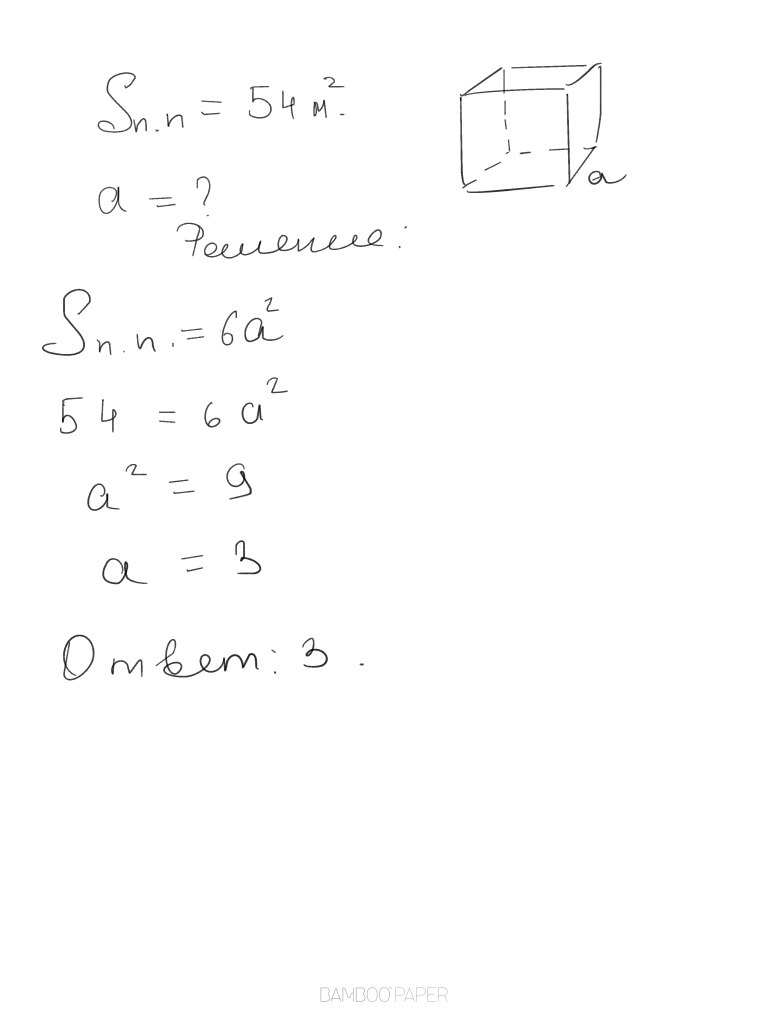 Sп.п = 54 м².
a
a = ?
Решение:
Sп.п. = 6a²
54 = 6a²
a² = 9
a = 3
Ответ: 3.
BAMBOO PAPER